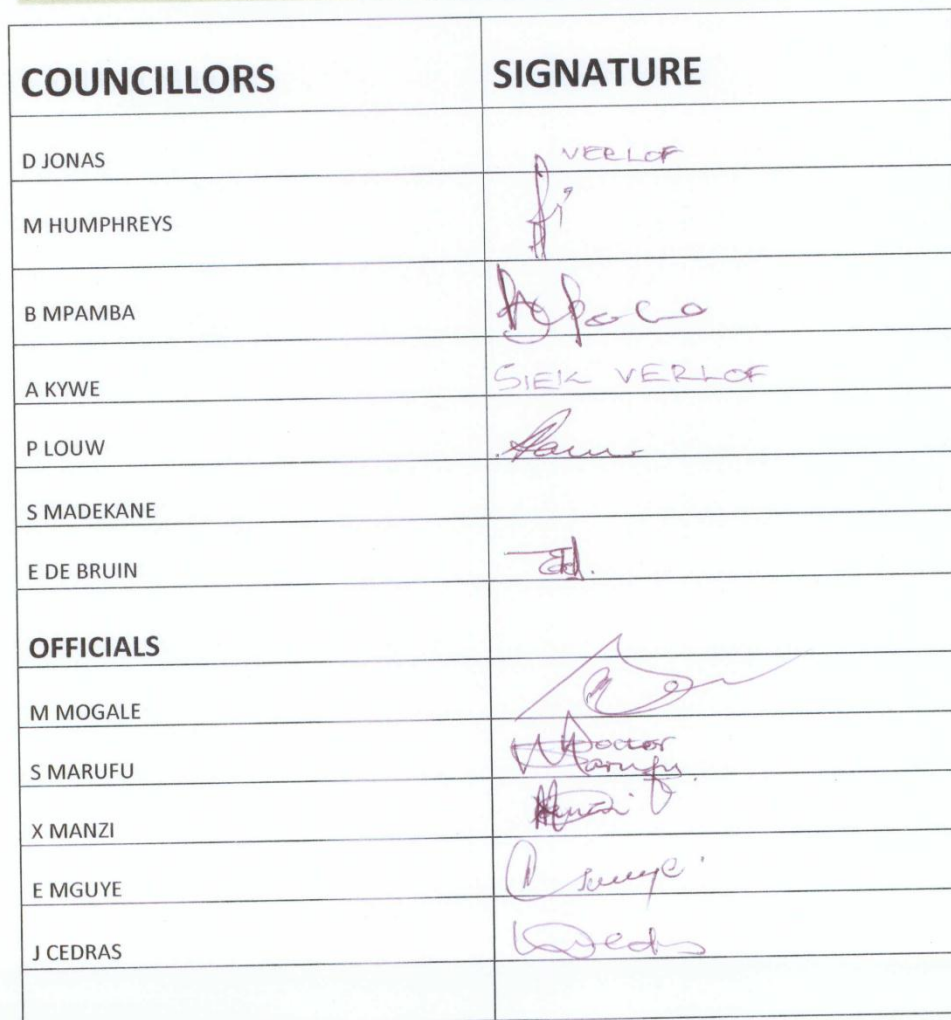 COUNCILLORS SIGNATURE
D JONAS VERLOF
M HUMPHREYS
B MPAMBA
A KYWE SIEK VERLOF
P LOUW
S MADEKANE
E DE BRUIN
OFFICIALS
M MOGALE
S MARUFU Doctor
Marufu
X MANZI
E MGUYE
J CEDRAS